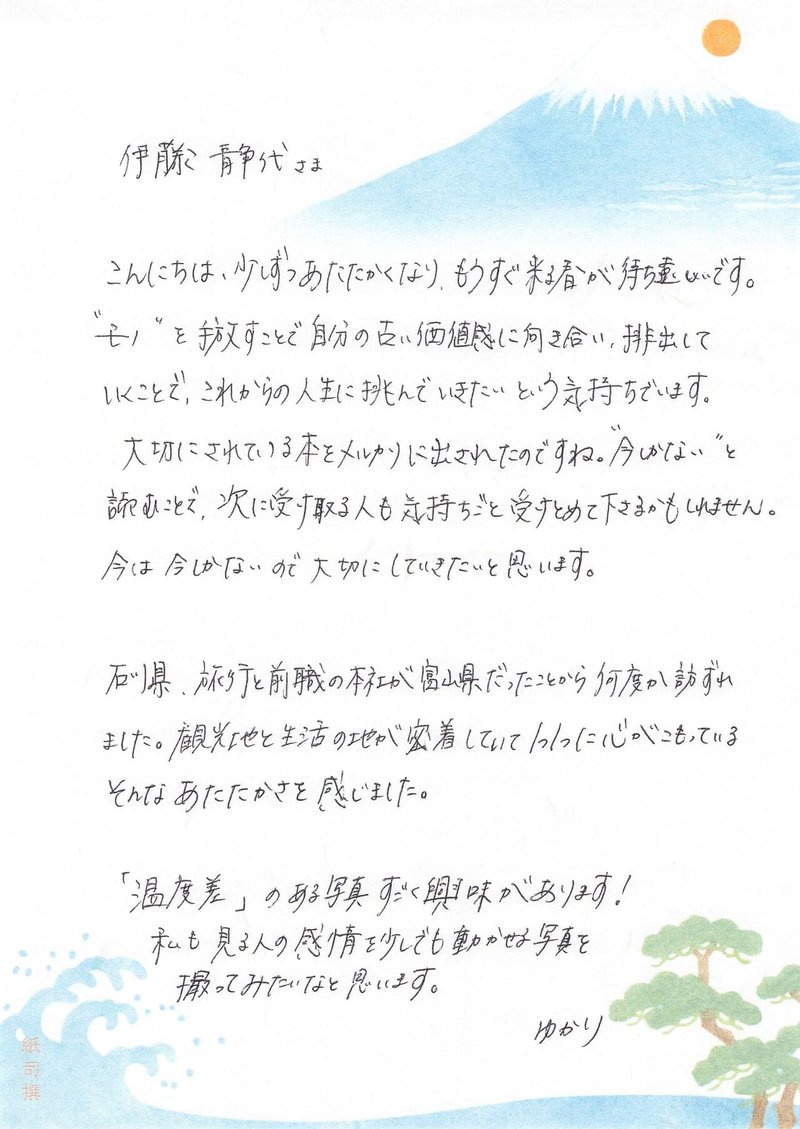 伊藤 静代さま
こんにちは、少しずつあたたかくなり、もうすぐ来る春が待ち遠しいです。
"モノ"を手放すことで自分の古い価値感に向き合い、排出して
いくことで、これからの人生に挑んでいきたいという気持ちでいます。
大切にされている本をメルカリに出されたのですね。"今しかない"と
読むことで、次に受け取る人も気持ちごと受けとめて下さるかもしれません。
今は今しかないので大切にしていきたいと思います。
石川県、旅行と前職の本社が富山県だったことから何度か訪ずれ
ました。観光地と生活の地が密着していて1つ1つに心がこもっている
そんなあたたかさを感じました。
「温度差」のある写真すごく興味があります!
私も見る人の感情を少しでも動かせる写真を
撮ってみたいなと思います。
ゆかり
紙司撰